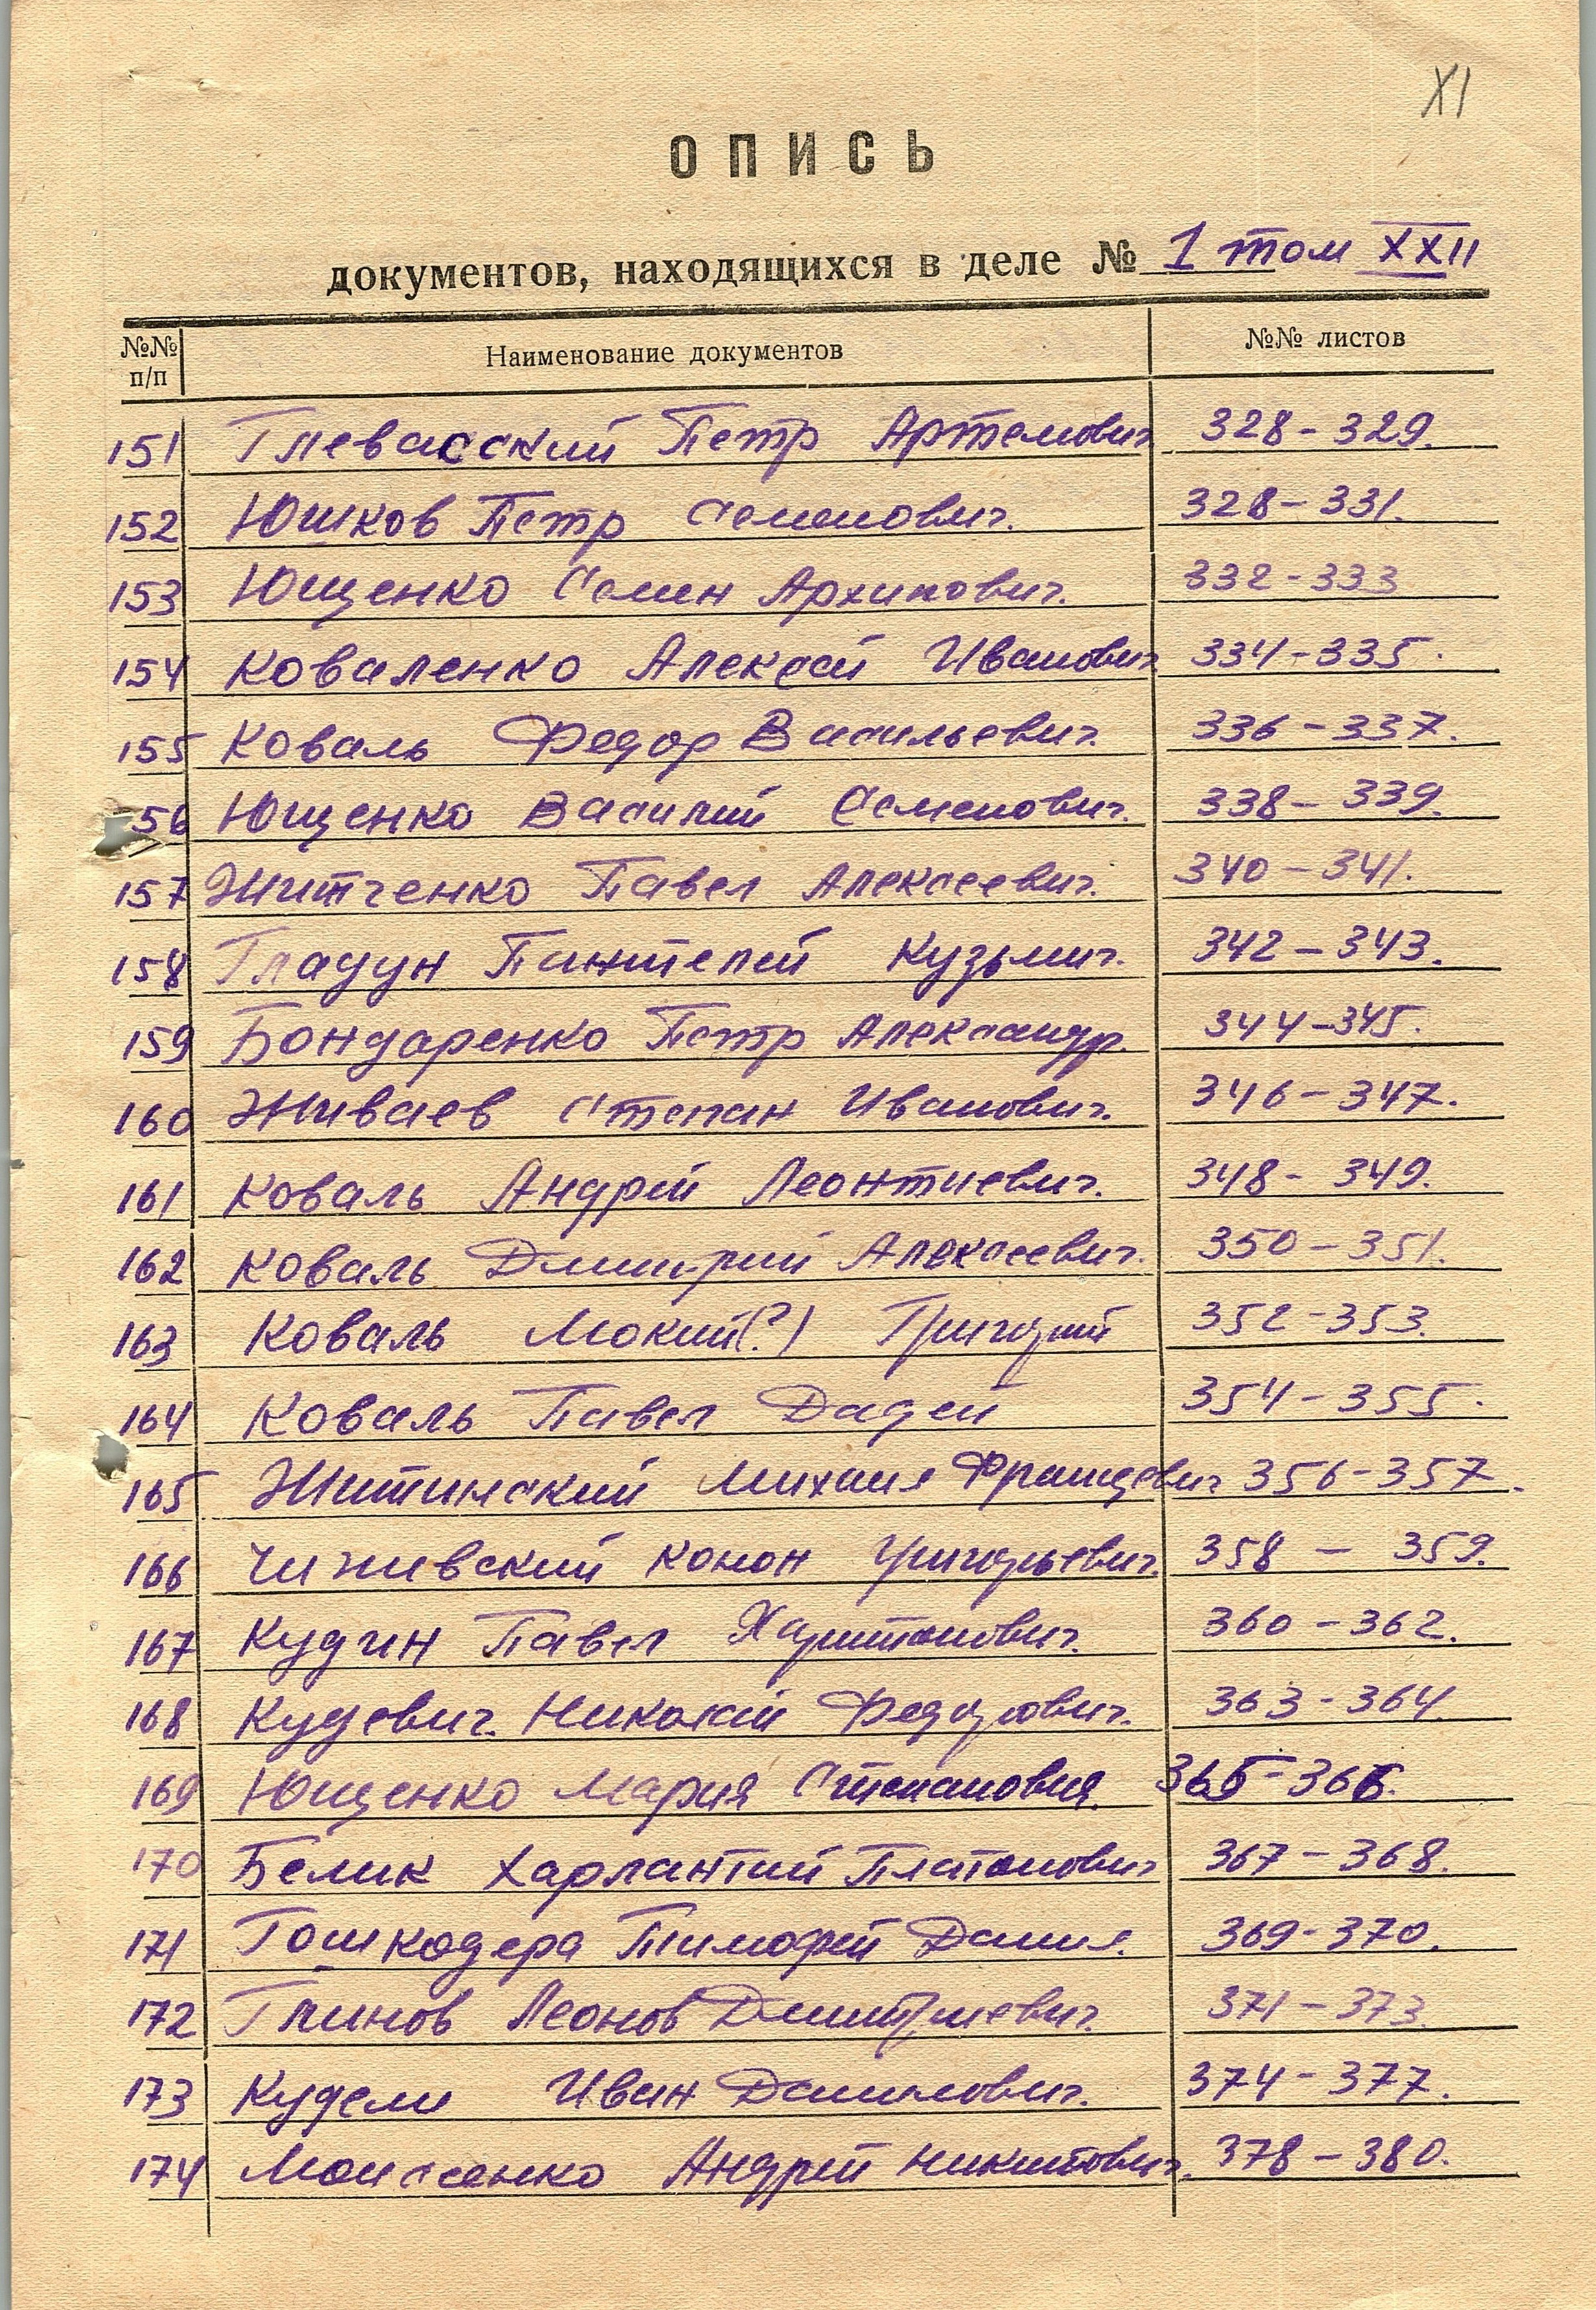 XI
ОПИСЬ
документов, находящихся в деле № 1 том XXII
№№ п/п Наименование документов №№ листов
151 Глевасский Петр Артемович 328-329.
152 Юшков Петр Семенович. 328-331.
153 Ющенко Семен Архипович. 332-333
154 Коваленко Алексей Иванович 334-335.
155 Коваль Федор Васильевич. 336-337.
156 Ющенко Василий Семенович. 338-339.
157 Житченко Павел Алексеевич. 340-341.
158 Гладун Пантелей Кузьмич. 342-343.
159 Бондаренко Петр Александр. 344-345.
160 Живаев Степан Иванович. 346-347.
161 Коваль Андрей Леонтиевич. 348-349.
162 Коваль Дмитрий Алексеевич. 350-351.
163 Коваль Мокий(?) Григорий 352-353.
164 Коваль Павел Дадей 354-355.
165 Житинский Михаил Францевич 356-357.
166 Чижевский Конон Григорьевич. 358-359.
167 Кудин Павел Харитонович. 360-362.
168 Кудевич Николай Федорович. 363-364.
169 Ющенко Мария Степановия. 365-366.
170 Белик Харлантий Платонович 367-368.
171 Гошкодера Тимофей Данил. 369-370.
172 Глинов Леонов Дмитриевич. 371-373.
173 Кудели Иван Данилович. 374-377.
174 Моисеенко Андрей Никитович. 378-380.